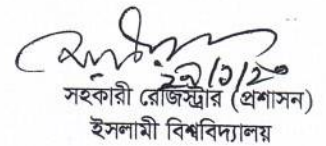 ২৯/১/২০
সহকারী রেজিস্ট্রার (প্রশাসন)
ইসলামী বিশ্ববিদ্যালয়